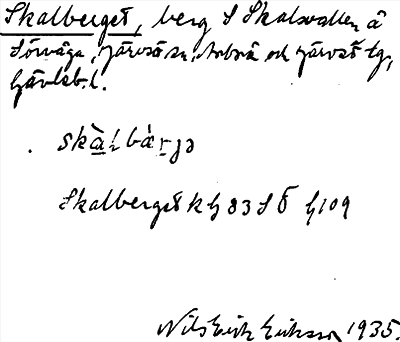 Skalberget, berg S Skalsvallen å
Sörvåga, Järvsö sn, Arbrå och Järvsö tg,
Gävleb.l.
skàlbàrjə
Skalberget k G 83 S Ö G 109
Nils Erik Eriksson 1935.